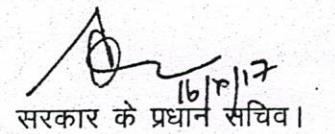 16/8/17
सरकार के प्रधान सचिव।